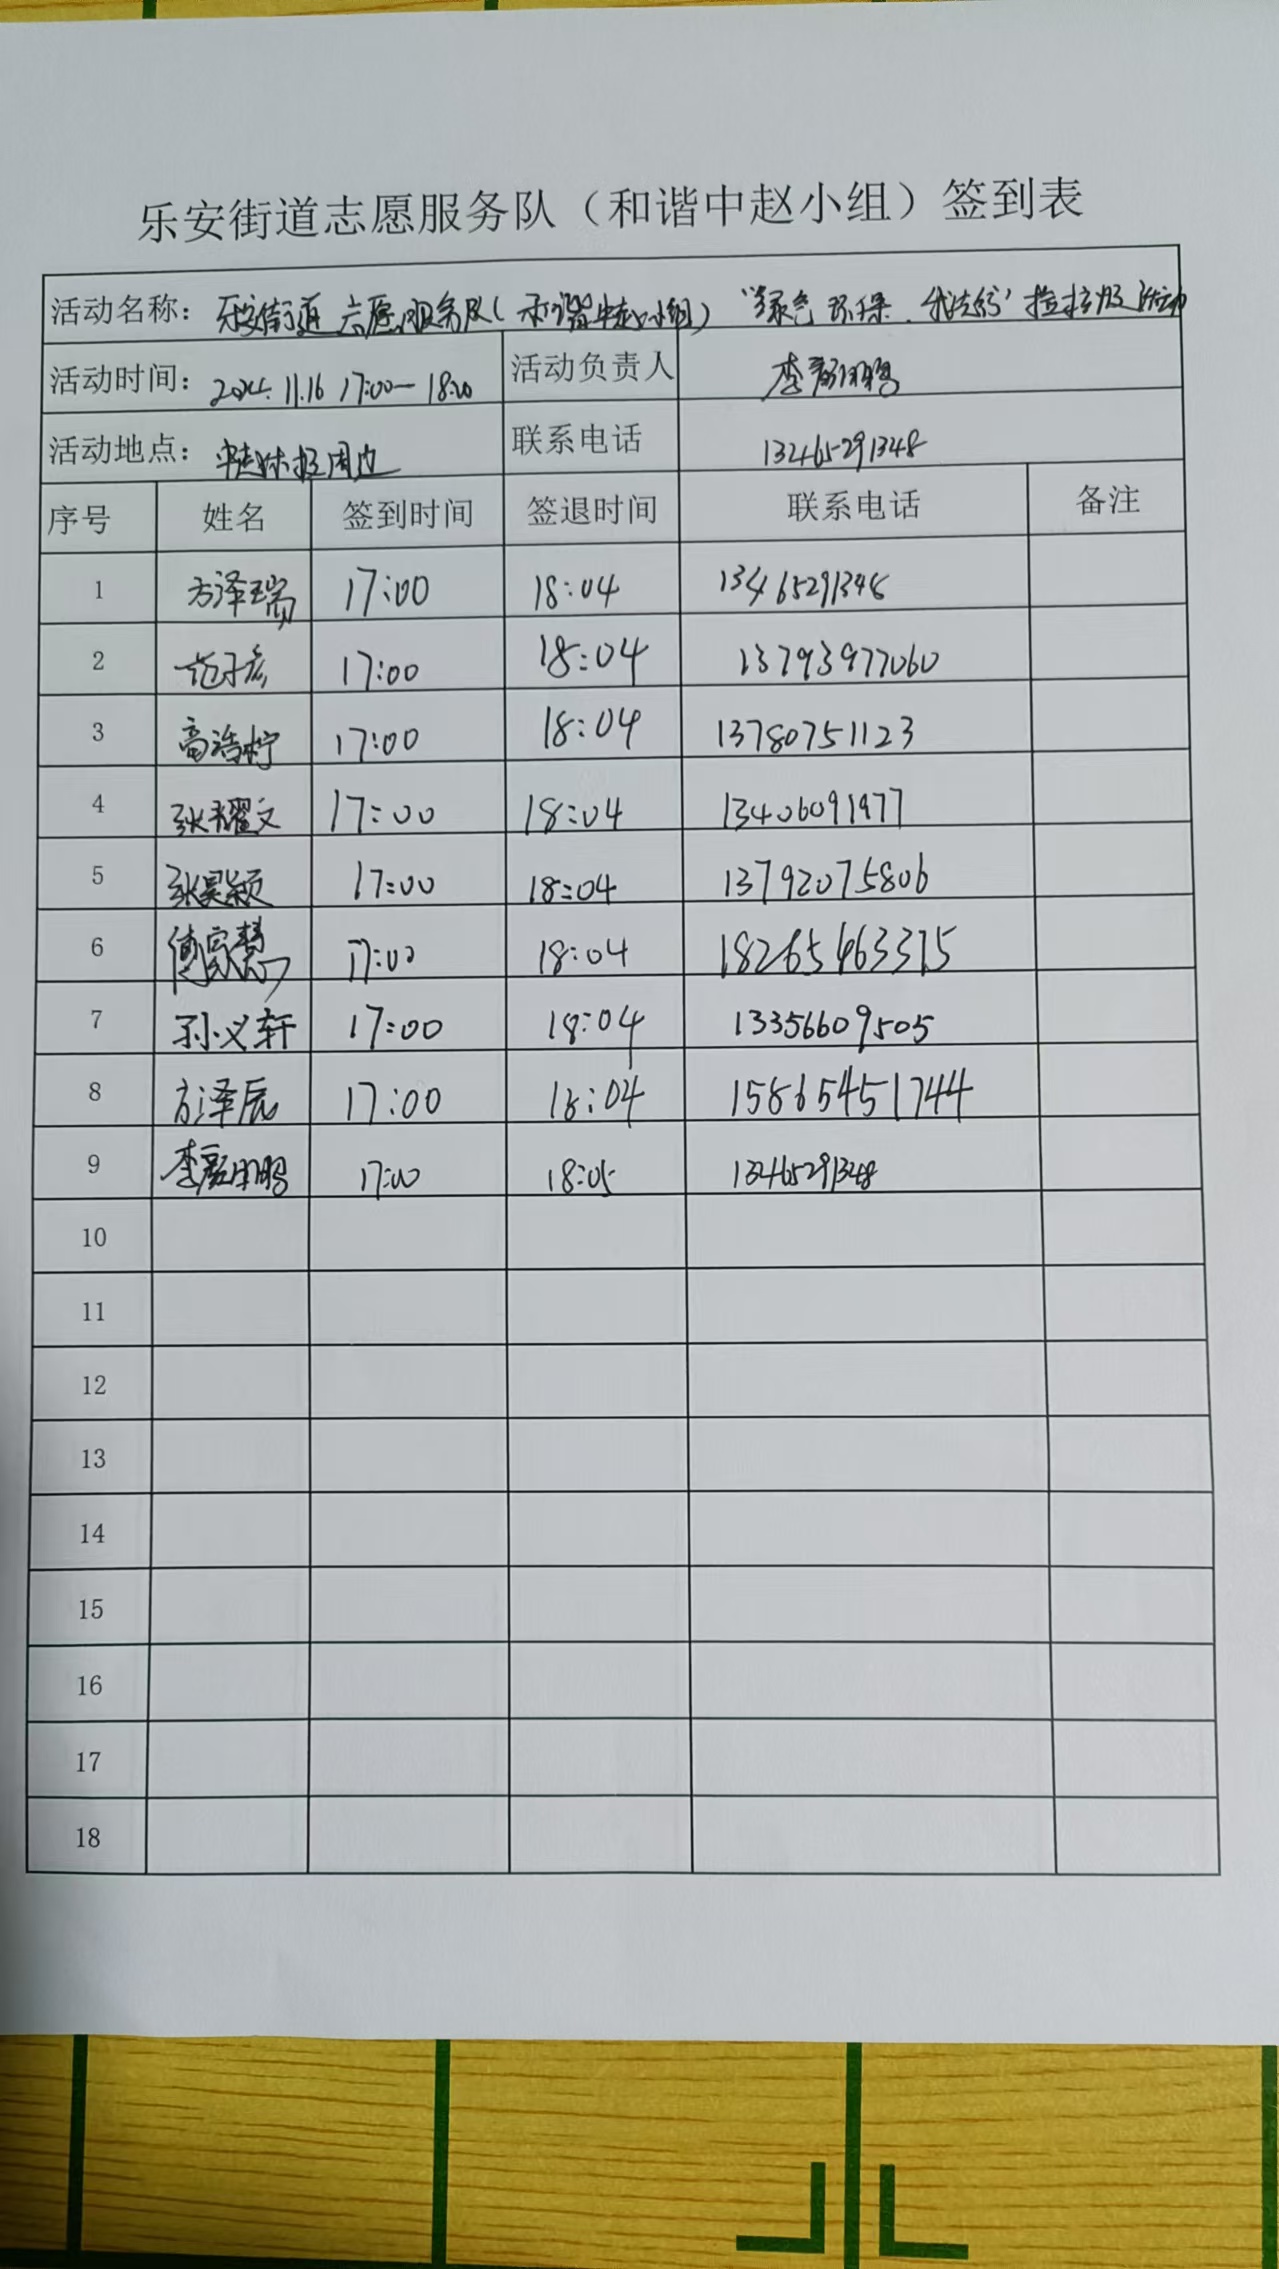 乐安街道志愿服务队（和谐中赵小组）签到表
活动名称：乐安街道志愿服务队(和谐中赵小组)“绿色环保、我先行”捡垃圾活动
活动时间：2024.11.16 17:00—18:00 活动负责人
活动地点：中赵村周边 联系电话 13465291348
序号 姓名 签到时间 签退时间 联系电话 备注
1 方泽瑞 17:00 18:04 13465291348
2 17:00 18:04 13793977060
3 高浩柠 17:00 18:04 13780751123
4 张耀文 17:00 18:04 13406091977
5 张昊颖 17:00 18:04 13792075806
6 傅家慧 17:00 18:04 18265463315
7 孙义轩 17:00 18:04 13356609505
8 方泽辰 17:00 18:04 15865451744
9 17:00 18:05 13465291348
10
11
12
13
14
15
16
17
18